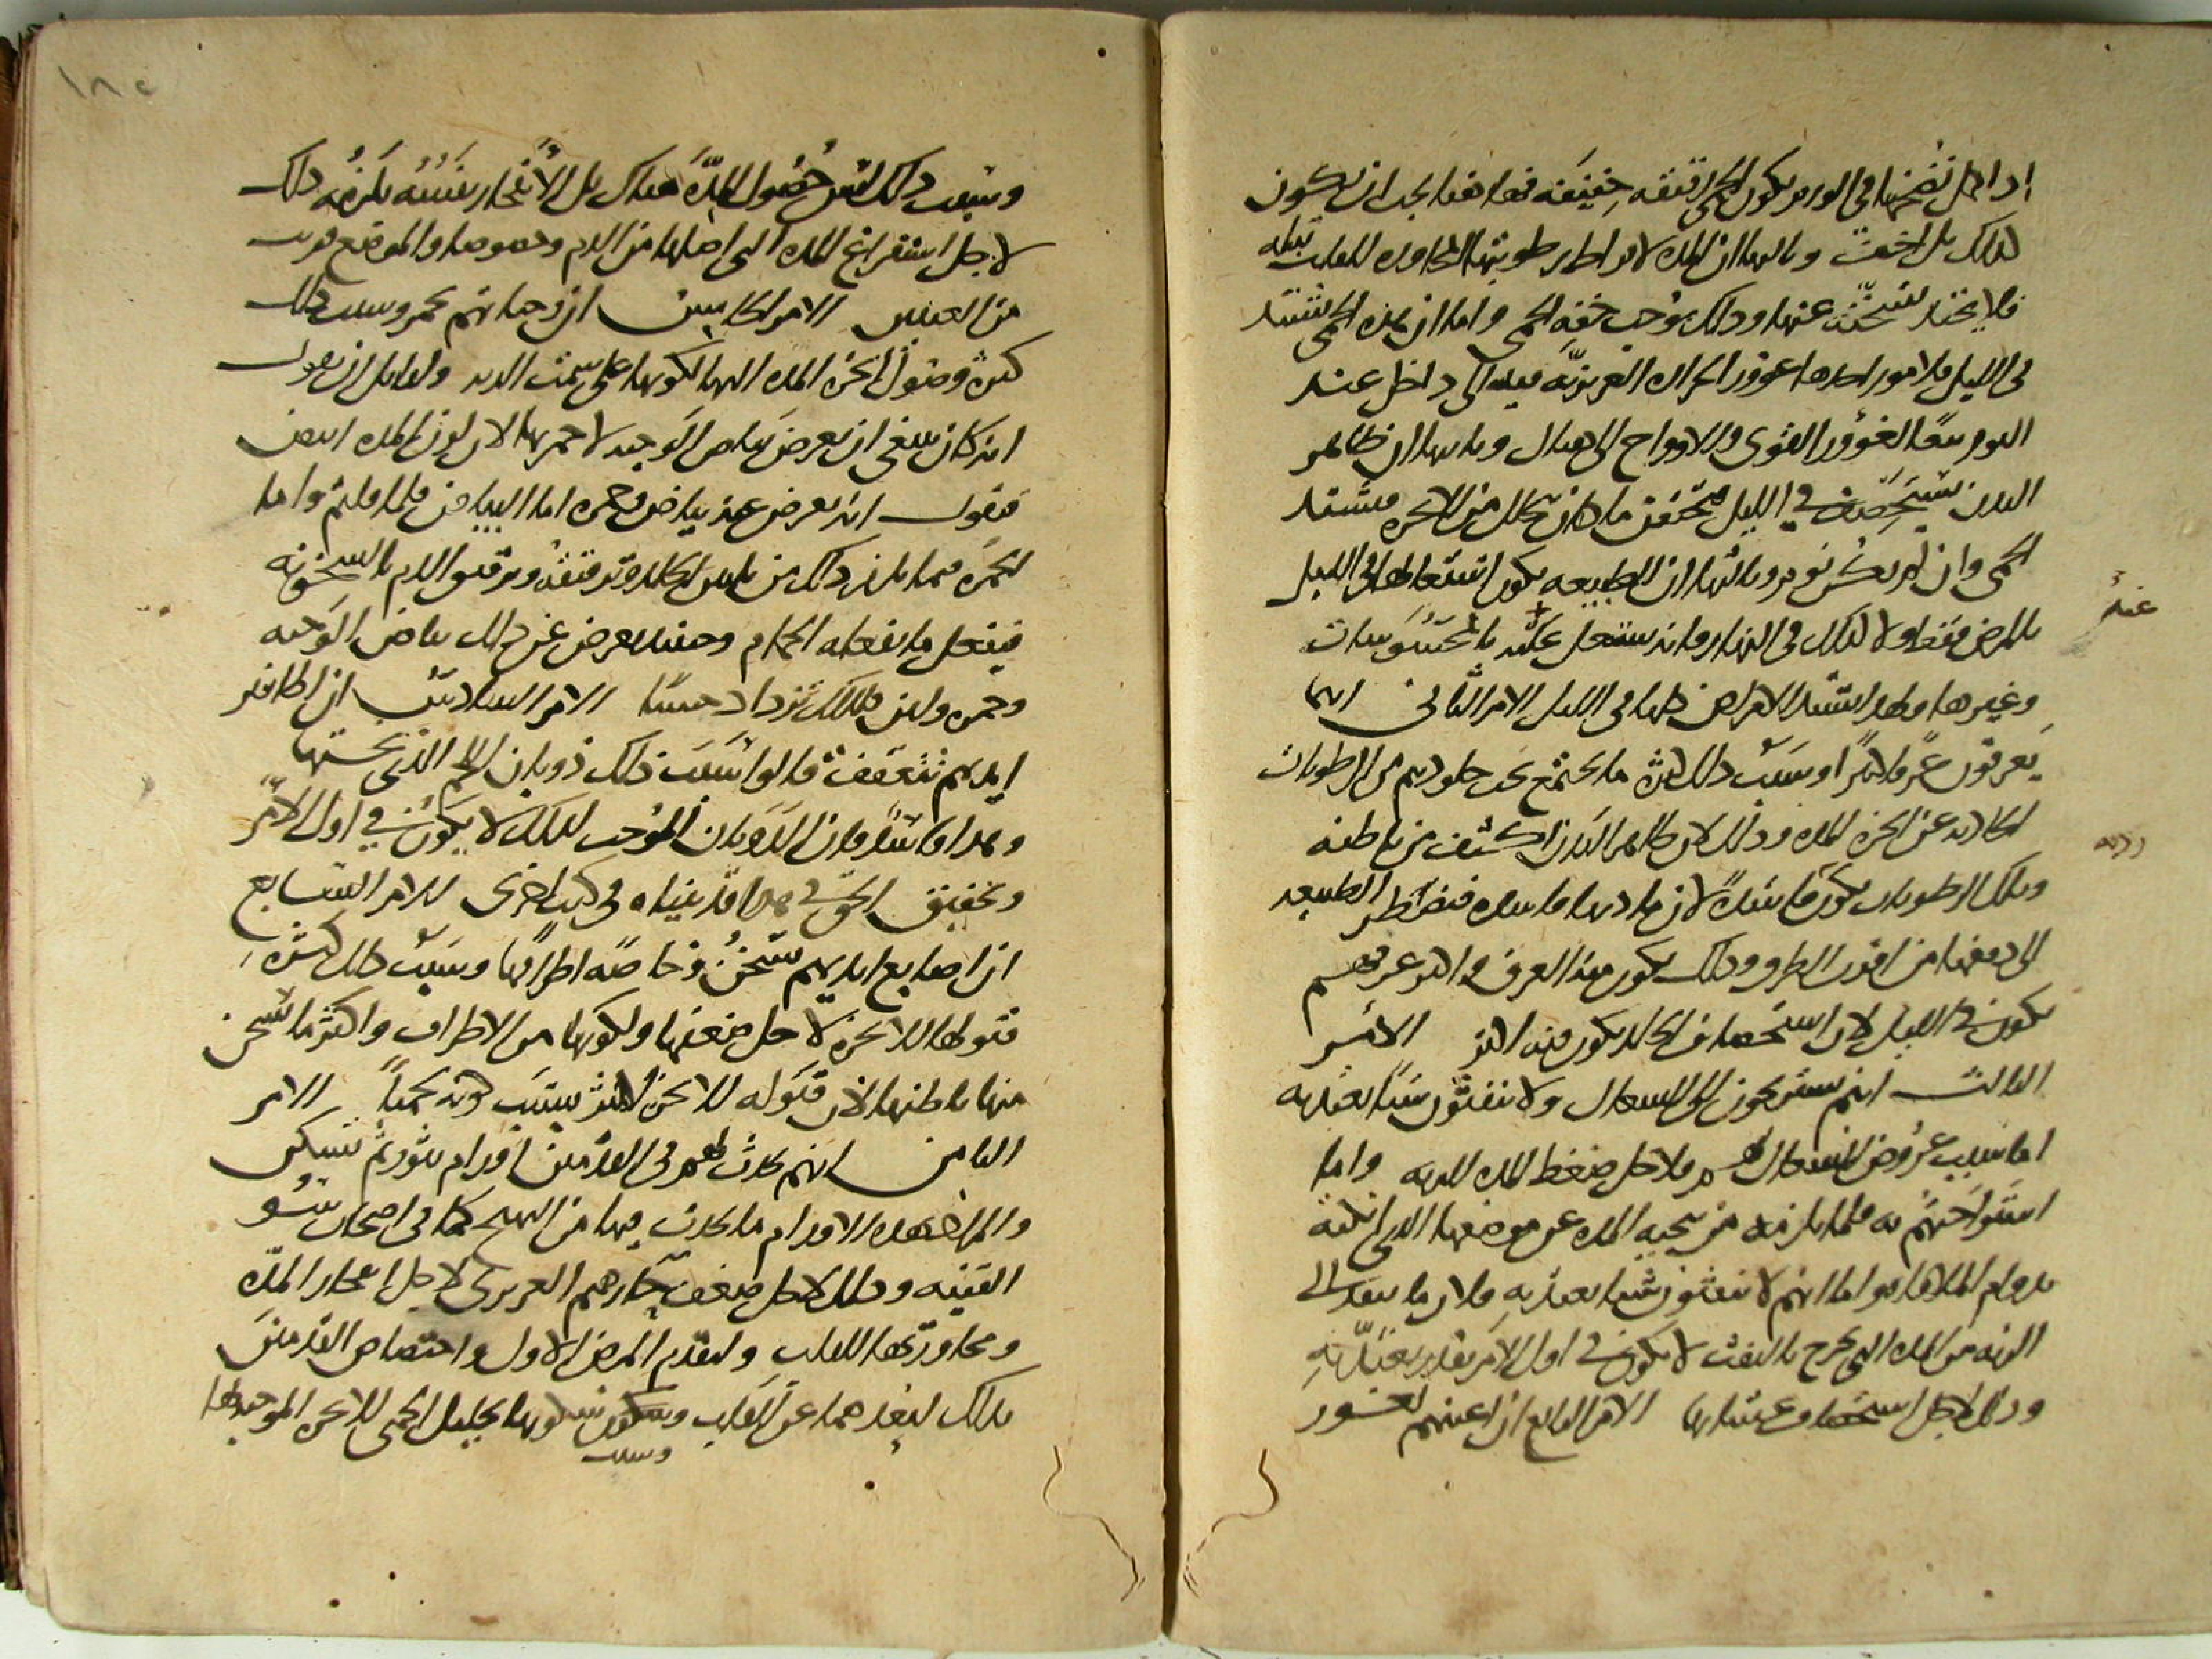 اذا حصل نضجها في الورم يكون الحمى دقيقه خفيفه فها هنا يجب ان تكون
لذلك بل اخف وثالثها ان المده لافراط رطوبتها المجاوره للقلب تبله
فلا يحتد تسخنه عنها وذلك يوجب خفه الحمى واما ان هذه الحمى تشتد
في الليل فلامور احدها غوور الحراره الغريزيه فيه الى داخل عند
النوم تبعا لغوور القوى والارواح الى هناك وثانيها ان ظاهر
البدن يستحصف في الليل فيحتقن ما كان يتحلل من الابخره فيشتد
الحمى وان لم يكن نوم وثالثها ان الطبيعه يكون اشتغالها في الليل
بالمرض فقط ولا كذلك في النهار فانه تشتغل عنه بالمحسوسات
وغيرها ولهذا تشتد الامراض كلها في الليل الامر الثاني انهم
يعرقون عرقا كثيرا وسبب ذلك كثره ما يجتمع تحت جلودهم من الرطوبات
الحادثه عن ابخره المده وذلك لان ظاهر البدن اكثف من باطنه
وتلك الرطوبات تكون فاسده لان مادتها فاسده فتضطر الطبيعه
الى دفعها من اقرب الطرق وذلك يكون هذا العرق واكثر عرقهم
يكون في الليل لان استحصاف الجلد يكون فيه اكثر الامر
الثالث انهم يستريحون الى السعال ولا ينفثون شيا يعتد به
اما سبب عروض السعال لهم فلاجل ضغط المده للريه واما
استراحتهم به فلما يلزمه من تنحيه المده عن موضعها الذي انكته
بدوام الملاقاه واما انهم لا ينفثون شيا يعتد به فلان ما ينفذ الى
الريه من المده التي تخرج بالنفث لا يكون في اول الامر بقدر يعتد به
وذلك لاجل استحصاف غشائها الامر الرابع ان اعينهم تغور
عنه
وسبب ذلك ليس حصول المده هناك بل الانفجار بنفسه يلزمه ذلك
لاجل استفراغ المده التي اصلها من الدم وخصوصا والموضع قريب
من العينين الامر الخامس ان وجناتهم تحمر وسبب ذلك
كثره وصول ابخره المده اليها لكونها على سمت الريه ولقايل ان يقول
انه كان ينبغي ان يعرض بياض الوجه لا حمرتها لان لون المده ابيض
فنقول انه يعرض عنه بياض وحمره اما البياض فلما قلتم واما
الحمره فبما يلزم ذلك من تليين الجلد وترقيقه وترقيق الدم بالسخونه
فيفعل ما يفعله الحمام وحينئذ يعرض عن ذلك بياض الوجه
وحمره ولين فلذلك تزداد حسنا الامر السادس ان اظافير
ايديهم تتعقف قالوا سبب ذلك ذوبان اللحم الذي تحتها
وهذا فاسد فان الذوبان الموجب لذلك لا يكون في اول الامر
وتحقيق الحق في هذا قد بيناه في كتب اخرى الامر السابع
ان اصابع ايديهم تسخن وخاصه اطرافها وسبب ذلك كثره
قبولها للابخره لاجل ضعفها ولكونها من الاطراف واكثر ما تسخن
منها باطنها لان قبوله للابخره اكثر بسبب كونه لحميا الامر
الثامن انهم يحدث لهم في القدمين اورام تثور ثم تسكن
والمراد بهذه الاورام ما يحدث فيها من التهيج كما في اصحاب سو
القنيه وذلك لاجل ضعف حارهم الغريزي لاجل انفجار المده
ومجاورتها للقلب ولتقدم المرض الاول واختصاص القدمين
بذلك لبعدهما عن القلب وسكونها لتحليل الحمى للابخره الموجبه لها
وسبب